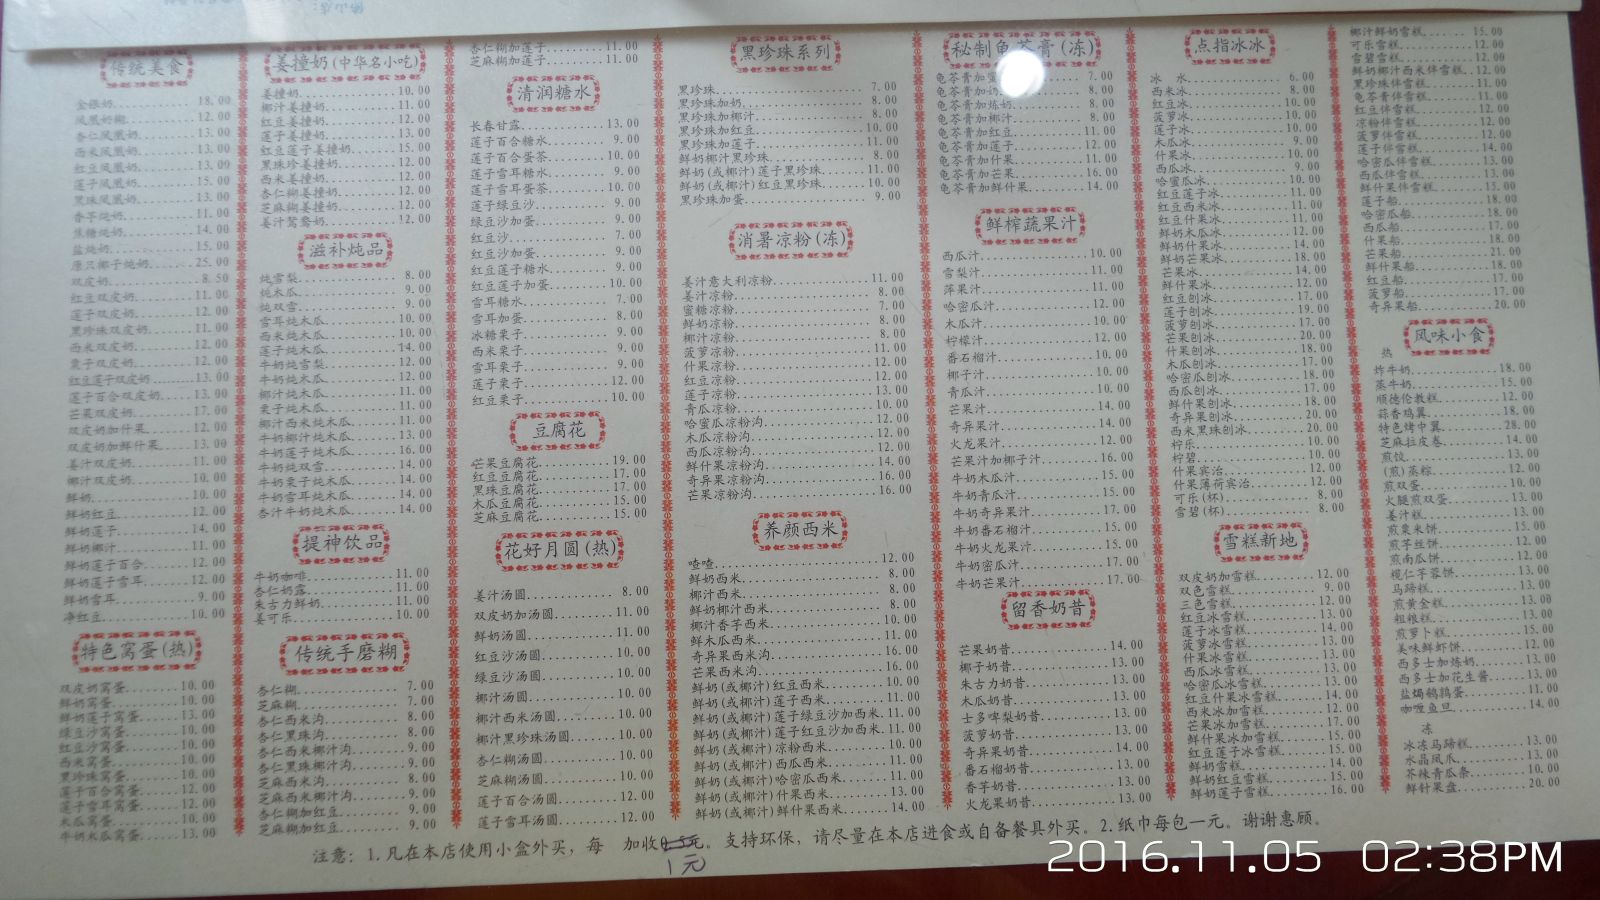 传统美食
金银奶 18.00
凤凰奶糊 12.00
杏仁凤凰奶 13.00
西米凤凰奶 13.00
红豆凤凰奶 13.00
莲子凤凰奶 15.00
黑珠凤凰奶 13.00
香芋炖奶 11.00
焦糖炖奶 14.00
盐炖奶 15.00
原只椰子炖奶 25.00
双皮奶 8.50
红豆双皮奶 11.00
莲子双皮奶 12.00
黑珍珠双皮奶 11.00
西米双皮奶 12.00
栗子双皮奶 12.00
红豆莲子双皮奶 13.00
莲子百合双皮奶 13.00
芒果双皮奶 17.00
双皮奶加什果 12.00
双皮奶加鲜什果 13.00
姜汁双皮奶 11.00
椰汁双皮奶 10.00
鲜奶 10.00
鲜奶红豆 12.00
鲜奶莲子 14.00
鲜奶椰汁 11.00
鲜奶莲子百合 12.00
鲜奶莲子雪耳 12.00
鲜奶雪耳 9.00
净红豆 10.00
特色窝蛋(热)
双皮奶窝蛋 10.00
鲜奶窝蛋 10.00
鲜奶莲子窝蛋 13.00
绿豆沙窝蛋 10.00
红豆沙窝蛋 10.00
西米窝蛋 10.00
黑珍珠窝蛋 10.00
莲子百合窝蛋 12.00
莲子雪耳窝蛋 12.00
木瓜窝蛋 10.00
牛奶木瓜窝蛋 13.00
姜撞奶(中华名小吃)
姜撞奶 10.00
椰汁姜撞奶 11.00
红豆姜撞奶 12.00
莲子姜撞奶 13.00
红豆莲子姜撞奶 15.00
黑珠珍姜撞奶 12.00
西米姜撞奶 12.00
杏仁糊姜撞奶 12.00
芝麻糊姜撞奶 12.00
姜汁鸳鸯奶 12.00
滋补炖品
炖雪梨 8.00
炖木瓜 9.00
炖双雪 9.00
雪耳炖木瓜 10.00
西米炖木瓜 10.00
莲子炖木瓜 14.00
牛奶炖雪梨 12.00
牛奶炖木瓜 12.00
椰汁炖木瓜 11.00
栗子炖木瓜 11.00
椰汁西米炖木瓜 11.00
牛奶椰汁炖木瓜 13.00
牛奶莲子炖木瓜 16.00
牛奶炖双雪 14.00
牛奶栗子炖木瓜 14.00
牛奶雪耳炖木瓜 14.00
杏汁牛奶炖木瓜 14.00
提神饮品
牛奶咖啡 11.00
杏仁奶露 11.00
朱古力鲜奶 11.00
姜可乐 10.00
传统手磨糊
杏仁糊 7.00
芝麻糊 7.00
杏仁西米沟 8.00
杏仁黑珠沟 8.00
杏仁西米椰汁沟 9.00
杏仁黑珠椰汁沟 9.00
芝麻西米沟 8.00
芝麻西米椰汁沟 9.00
杏仁糊加红豆 9.00
芝麻糊加红豆 9.00
杏仁糊加莲子 11.00
芝麻糊加莲子 11.00
清润糖水
长春甘露 13.00
莲子百合糖水 9.00
莲子百合蛋茶 10.00
莲子雪耳糖水 9.00
莲子雪耳蛋茶 10.00
莲子绿豆沙 9.00
绿豆沙加蛋 9.00
红豆沙 7.00
红豆沙加蛋 9.00
红豆莲子糖水 9.00
红豆莲子加蛋 10.00
雪耳糖水 7.00
雪耳加蛋 8.00
冰糖栗子 9.00
西米栗子 9.00
雪耳栗子 9.00
莲子栗子 12.00
红豆栗子 10.00
豆腐花
芒果豆腐花 19.00
红豆豆腐花 17.00
黑珠豆腐花 17.00
木瓜豆腐花 15.00
芝麻豆腐花 15.00
花好月圆(热)
姜汁汤圆 8.00
双皮奶加汤圆 11.00
鲜奶汤圆 11.00
红豆沙汤圆 10.00
绿豆沙汤圆 10.00
椰汁汤圆 10.00
椰汁西米汤圆 10.00
椰汁黑珍珠汤圆 10.00
杏仁糊汤圆 10.00
芝麻糊汤圆 10.00
莲子百合汤圆 12.00
莲子雪耳汤圆 12.00
黑珍珠系列
黑珍珠 7.00
黑珍珠加奶 8.00
黑珍珠加椰汁 8.00
黑珍珠加红豆 10.00
黑珍珠加莲子 11.00
鲜奶椰汁黑珍珠 8.00
鲜奶(或椰汁)莲子黑珍珠 11.00
鲜奶(或椰汁)红豆黑珍珠 10.00
黑珍珠加蛋 9.00
消暑凉粉(冻)
姜汁意大利凉粉 11.00
姜汁凉粉 8.00
蜜糖凉粉 7.00
鲜奶凉粉 8.00
椰汁凉粉 8.00
菠萝凉粉 11.00
什果凉粉 12.00
红豆凉粉 12.00
莲子凉粉 13.00
青瓜凉粉 10.00
哈蜜瓜凉粉沟 12.00
木瓜凉粉沟 12.00
西瓜凉粉沟 12.00
鲜什果凉粉沟 14.00
奇异果凉粉沟 16.00
芒果凉粉沟 16.00
养颜西米
喳喳 12.00
鲜奶西米 8.00
椰汁西米 8.00
鲜奶椰汁西米 8.00
椰汁香芋西米 10.00
鲜木瓜西米 11.00
奇异果西米沟 16.00
芒果西米沟 16.00
鲜奶(或椰汁)红豆西米 10.00
鲜奶(或椰汁)莲子西米 11.00
鲜奶(或椰汁)莲子绿豆沙加西米 11.00
鲜奶(或椰汁)莲子红豆沙加西米 11.00
鲜奶(或椰汁)凉粉西米 10.00
鲜奶(或椰汁)西瓜西米 11.00
鲜奶(或椰汁)哈密瓜西米 11.00
鲜奶(或椰汁)什果西米 13.00
鲜奶(或椰汁)鲜什果西米 14.00
秘制龟苓膏(冻)
龟苓膏加 7.00
龟苓膏加奶 8.00
龟苓膏加炼奶 8.00
龟苓膏加椰汁 8.00
龟苓膏加红豆 11.00
龟苓膏加莲子 12.00
龟苓膏加什果 11.00
龟苓膏加芒果 16.00
龟苓膏加鲜什果 14.00
鲜榨蔬果汁
西瓜汁 10.00
雪梨汁 11.00
萍果汁 11.00
哈密瓜汁 12.00
木瓜汁 10.00
柠檬汁 12.00
番石榴汁 10.00
椰子汁 10.00
青瓜汁 10.00
芒果汁 14.00
奇异果汁 14.00
火龙果汁 12.00
芒果汁加椰子汁 16.00
牛奶木瓜汁 15.00
牛奶青瓜汁 15.00
牛奶奇异果汁 17.00
牛奶番石榴汁 15.00
牛奶火龙果汁 15.00
牛奶蜜瓜汁 17.00
牛奶芒果汁 17.00
留香奶昔
芒果奶昔 14.00
椰子奶昔 13.00
朱古力奶昔 13.00
木瓜奶昔 13.00
士多啤梨奶昔 13.00
菠萝奶昔 13.00
奇异果奶昔 14.00
番石榴奶昔 13.00
香芋奶昔 13.00
火龙果奶昔 13.00
点指冰冰
冰 水 6.00
西米冰 8.00
红豆冰 10.00
菠萝冰 9.00
莲子冰 10.00
木瓜冰 9.00
什果冰 10.00
西瓜冰 9.00
哈蜜瓜冰 10.00
红豆莲子冰 11.00
红豆西米冰 11.00
红豆什果冰 11.00
鲜奶木瓜冰 12.00
鲜奶什果冰 14.00
鲜奶芒果冰 18.00
芒果冰 14.00
鲜什果冰 12.00
红豆刨冰 17.00
莲子刨冰 19.00
菠萝刨冰 17.00
芒果刨冰 20.00
什果刨冰 18.00
木瓜刨冰 17.00
哈密瓜刨冰 18.00
西瓜刨冰 17.00
鲜什果刨冰 18.00
奇异果刨冰 20.00
西米黑珠刨冰 20.00
柠乐 10.00
柠碧 10.00
什果宾治 12.00
什果薄荷宾治 12.00
可乐(杯) 8.00
雪碧(杯) 8.00
雪糕新地
双皮奶加雪糕 12.00
双色雪糕 9.00
三色雪糕 12.00
红豆冰雪糕 13.00
莲子冰雪糕 14.00
菠萝冰雪糕 13.00
什果冰雪糕 13.00
西瓜冰雪糕 13.00
哈密瓜冰雪糕 13.00
红豆什果冰雪糕 14.00
西米冰加雪糕 12.00
芒果冰加雪糕 17.00
鲜什果冰加雪糕 15.00
红豆莲子冰雪糕 15.00
鲜奶雪糕 14.00
鲜奶红豆雪糕 15.00
鲜奶莲子雪糕 16.00
椰汁鲜奶雪糕 15.00
可乐雪糕 12.00
雪碧雪糕 12.00
鲜奶椰汁西米伴雪糕 12.00
黑珍珠伴雪糕 12.00
龟苓膏伴雪糕 12.00
红豆伴雪糕 12.00
凉粉伴雪糕 12.00
菠萝伴雪糕 12.00
莲子伴雪糕 14.00
哈密瓜伴雪糕 13.00
西瓜伴雪糕 13.00
鲜什果伴雪糕 15.00
莲子船 18.00
哈密瓜船 18.00
西瓜船 17.00
什果船 18.00
芒果船 21.00
鲜什果船 18.00
红豆船 17.00
菠萝船 17.00
奇异果船 20.00
风味小食
热
炸牛奶 18.00
蒸牛奶 15.00
顺德伦教糕 12.00
蒜香鸡翼 18.00
特色烤中翼 28.00
芝麻拉皮卷 14.00
煎饺 13.00
(煎)蒸粽 12.00
煎双蛋 10.00
火腿煎双蛋 13.00
姜汁糕 13.00
煎粟米饼 15.00
煎芋丝饼 12.00
煎南瓜饼 12.00
榄仁芋蓉饼 13.00
马蹄糕 13.00
煎黄金糕 13.00
粗粮糕 13.00
煎萝卜糕 15.00
美味鲜虾饼 12.00
西多士加炼奶 13.00
西多士加花生酱 13.00
盐焗鹌鹑蛋 11.00
咖喱鱼旦 14.00
冻
冰冻马蹄糕 13.00
水晶凤爪 13.00
芥辣青瓜条 10.00
鲜什果盘 20.00
注意：1.凡在本店使用小盒外买，每 加收0.5元。支持环保，请尽量在本店进食或自备餐具外买。2.纸巾每包一元。谢谢惠顾。
1元
2016.11.05 02:38PM